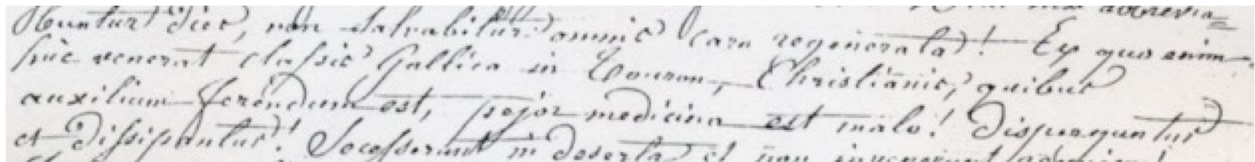 abbrevia=
buntur dies, non salvabitur omnis caro regenerata! Ex quo enim
huc venerat classis Gallica in Touron, Christianis, quibus
auxilium ferendum est, pejor medicina est malo! Disperguntur
et dissipantur! Secesserunt in deserta et non invenerunt